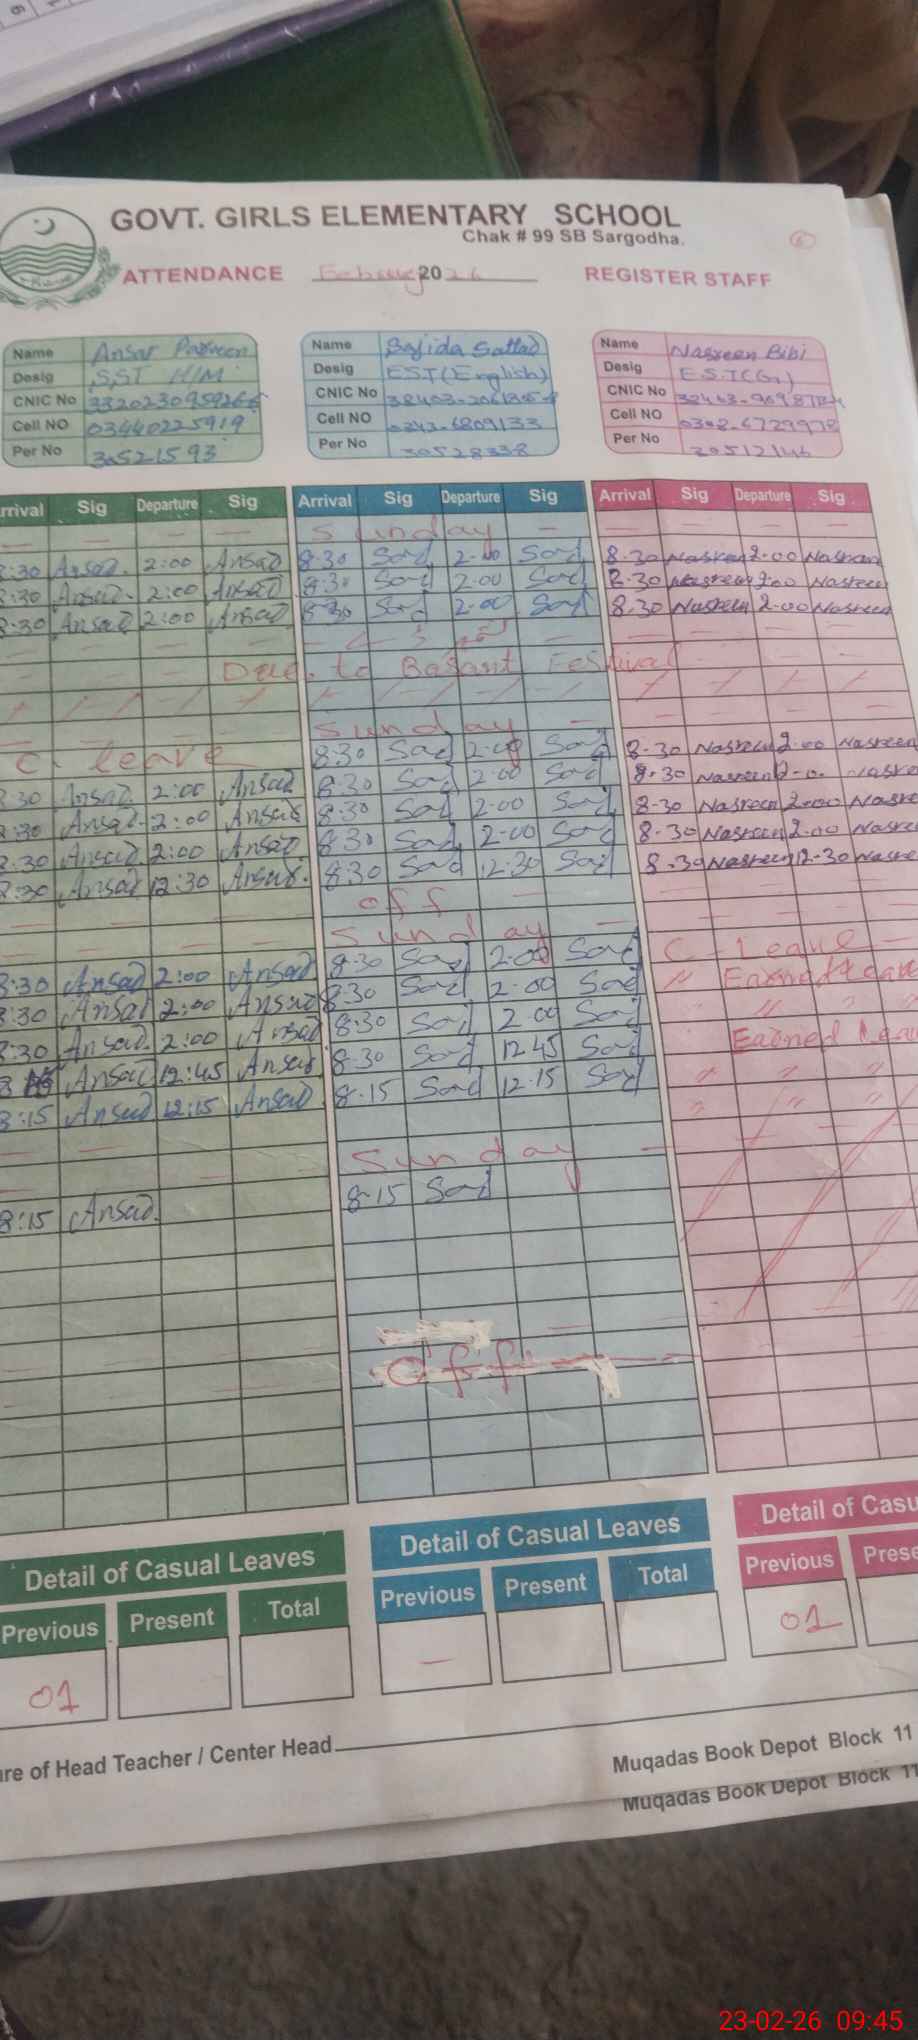 GOVT. GIRLS ELEMENTARY SCHOOL
Chak # 99 SB Sargodha.
ATTENDANCE 2026 REGISTER STAFF
Name Ansar Parveen
Desig SST H/M
CNIC No
Cell NO 03440225919
Per No 30521593
Name Sajida Sattad
Desig EST(English)
CNIC No
Cell NO 0343-6809133
Per No 30528338
Name Nasreen Bibi
Desig E.S.T(G)
CNIC No
Cell NO 0302-6729978
Per No 30512146
rrival Sig Departure Sig Arrival Sig Departure Sig Arrival Sig Departure Sig
Sunday
:30 Ansad. 2:00 Ansad 8:30 Sad 2:00 Sad 8.30 Nasreen 2.00 Nasreen
:30 Ansad. 2:00 Ansad 8:30 Sad 2:00 Sad 8.30 Nasreen 2.00 Nasreen
8:30 Ansad 2:00 Ansad 8:30 Sad 2:00 Sad 8.30 Nasreen 2.00 Nasreen
Due to Basant Festival
Sunday
C. leave 8:30 Sad 2:00 Sad 8.30 Nasreen 2.00 Nasreen
:30 Ansad. 2:00 Ansad 8:30 Sad 2:00 Sad 8.30 Nasreen
:30 Ansad. 2:00 Ansad 8:30 Sad 2:00 Sad 8-30 Nasreen 2.00 Nasre
:30 Ansad 2:00 Ansad 8:30 Sad 2:00 Sad 8-30 Nasreen 2.00 Nasre
:30 Ansad 12:30 Ansad. 8:30 Sad 12:30 Sad 8.30 Nasreen 12-30 Nasre
off
Sunday
8:30 Ansad 2:00 Ansad 8:30 Sad 2:00 Sad C-Leave
8:30 Ansad 2:00 Ansad 8:30 Sad 2:00 Sad " Earned Leave
8:30 Ansad. 2:00 Ansad 8:30 Sad 2:00 Sad
8 Ansad 12:45 Ansad. 8-30 Sad 12 45 Sad Earned Lea
8:15 Ansad 12:15 Ansad. 8-15 Sad 12.15 Sad
Sunday
8:15 Ansad. 8-15 Sad
off
Detail of Casual Leaves Detail of Casual Leaves Detail of Casu
Previous Present Total Previous Present Total Previous Prese
01 - 01
ure of Head Teacher / Center Head
Muqadas Book Depot Block 11
Muqadas Book Depot Block 11
23-02-26 09:45